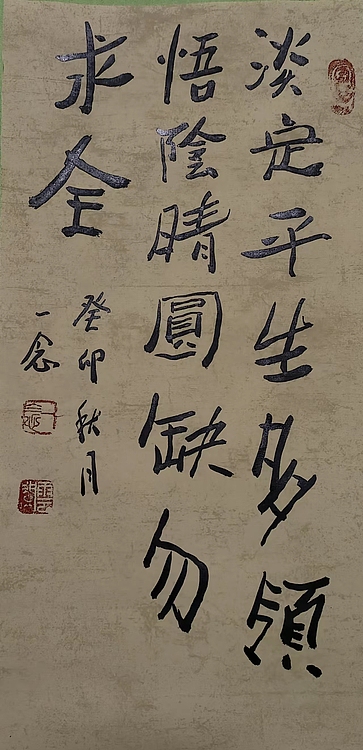 淡定平生多領
悟陰晴圓缺勿
求全
癸卯秋月
一念